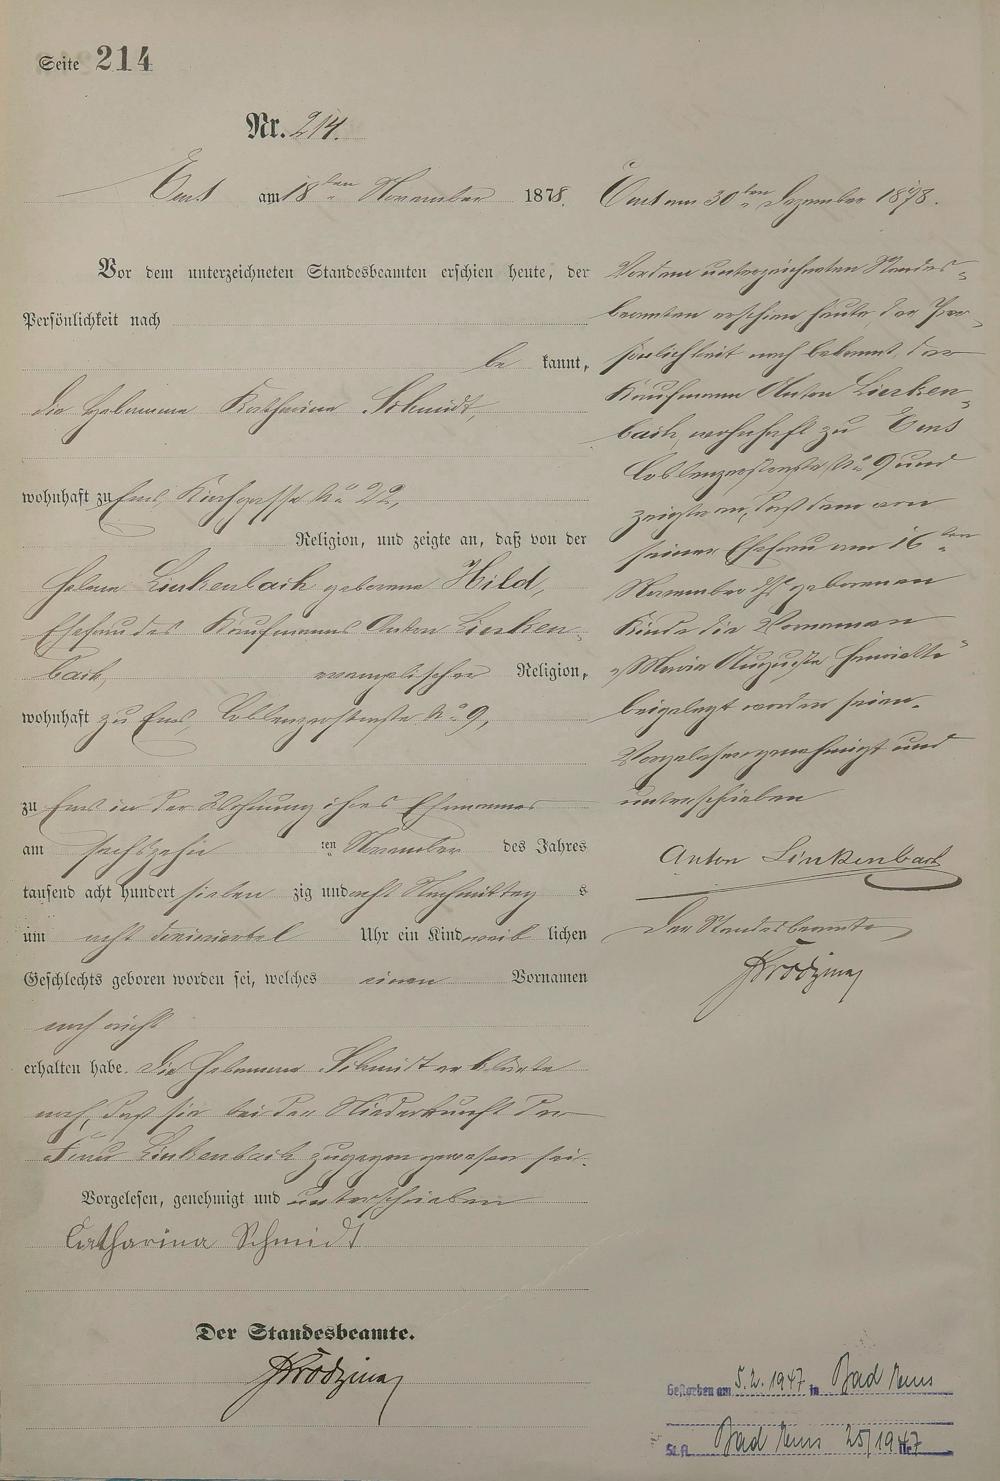 Seite 214
Nr. 214.
Ems am 18ten November 1878.
Vor dem unterzeichneten Standesbeamten erschien heute, der
Persönlichkeit nach
be kannt,
die Hebamme Katharina Schmidt,
wohnhaft zu Ems, Kirchgasse No 22,
Religion, und zeigte an, daß von der
Helene Linkenbach geborene Hild,
Ehefrau des Kaufmanns Anton Linken-
bach, evangelischer Religion,
wohnhaft zu Ems, Coblenzerstraße No 9,
zu Ems in der Wohnung ihres Ehemannes
am sechszehn ten November des Jahres
tausend acht hundert sieben zig und acht Nachmittag s
um acht dreiviertel Uhr ein Kind weib lichen
Geschlechts geboren worden sei, welches einen Vornamen
noch nicht
erhalten habe. Die Hebamme Schmidt erklärte
noch, daß sie bei der Niederkunft der
Frau Linkenbach zugegen gewesen sei.
Vorgelesen, genehmigt und unterschrieben
Catharina Schmidt
Der Standesbeamte.
Ems am 30ten Dezember 1878.
Vor dem unterzeichneten Standes-
beamten erschien heute, der Per-
sönlichkeit nach bekannt, der
Kaufmann Anton Linken-
bach, wohnhaft zu Ems
Coblenzerstraße No 9 und
zeigte an, daß dem von
seiner Ehefrau am 16ten
November ds geborenen
Kinde die Vornamen
"Maria Auguste Henriette"
beigelegt worden seien.
Vorgelesen genehmigt und
unterschrieben
Anton Linkenbach
Der Standesbeamte
Gestorben am 5.2.1947 in Bad Ems
St.A. Bad Ems 25/1947 Nr.